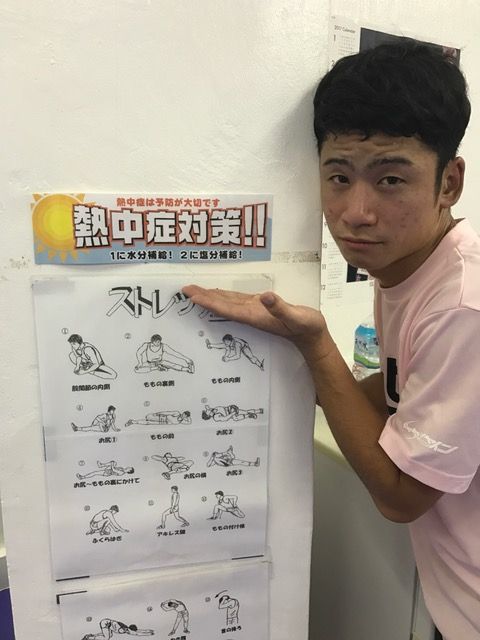 2017 Calendar
熱中症は予防が大切です
熱中症対策!!
1に水分補給! 2に塩分補給!
ストレッチ
① ② ③
股関節の内側 ももの裏側 ももの内側
お尻① ももの前 お尻②
お尻〜ももの裏にかけて お尻の横 お尻③
ふくらはぎ アキレス腱 ももの付け根